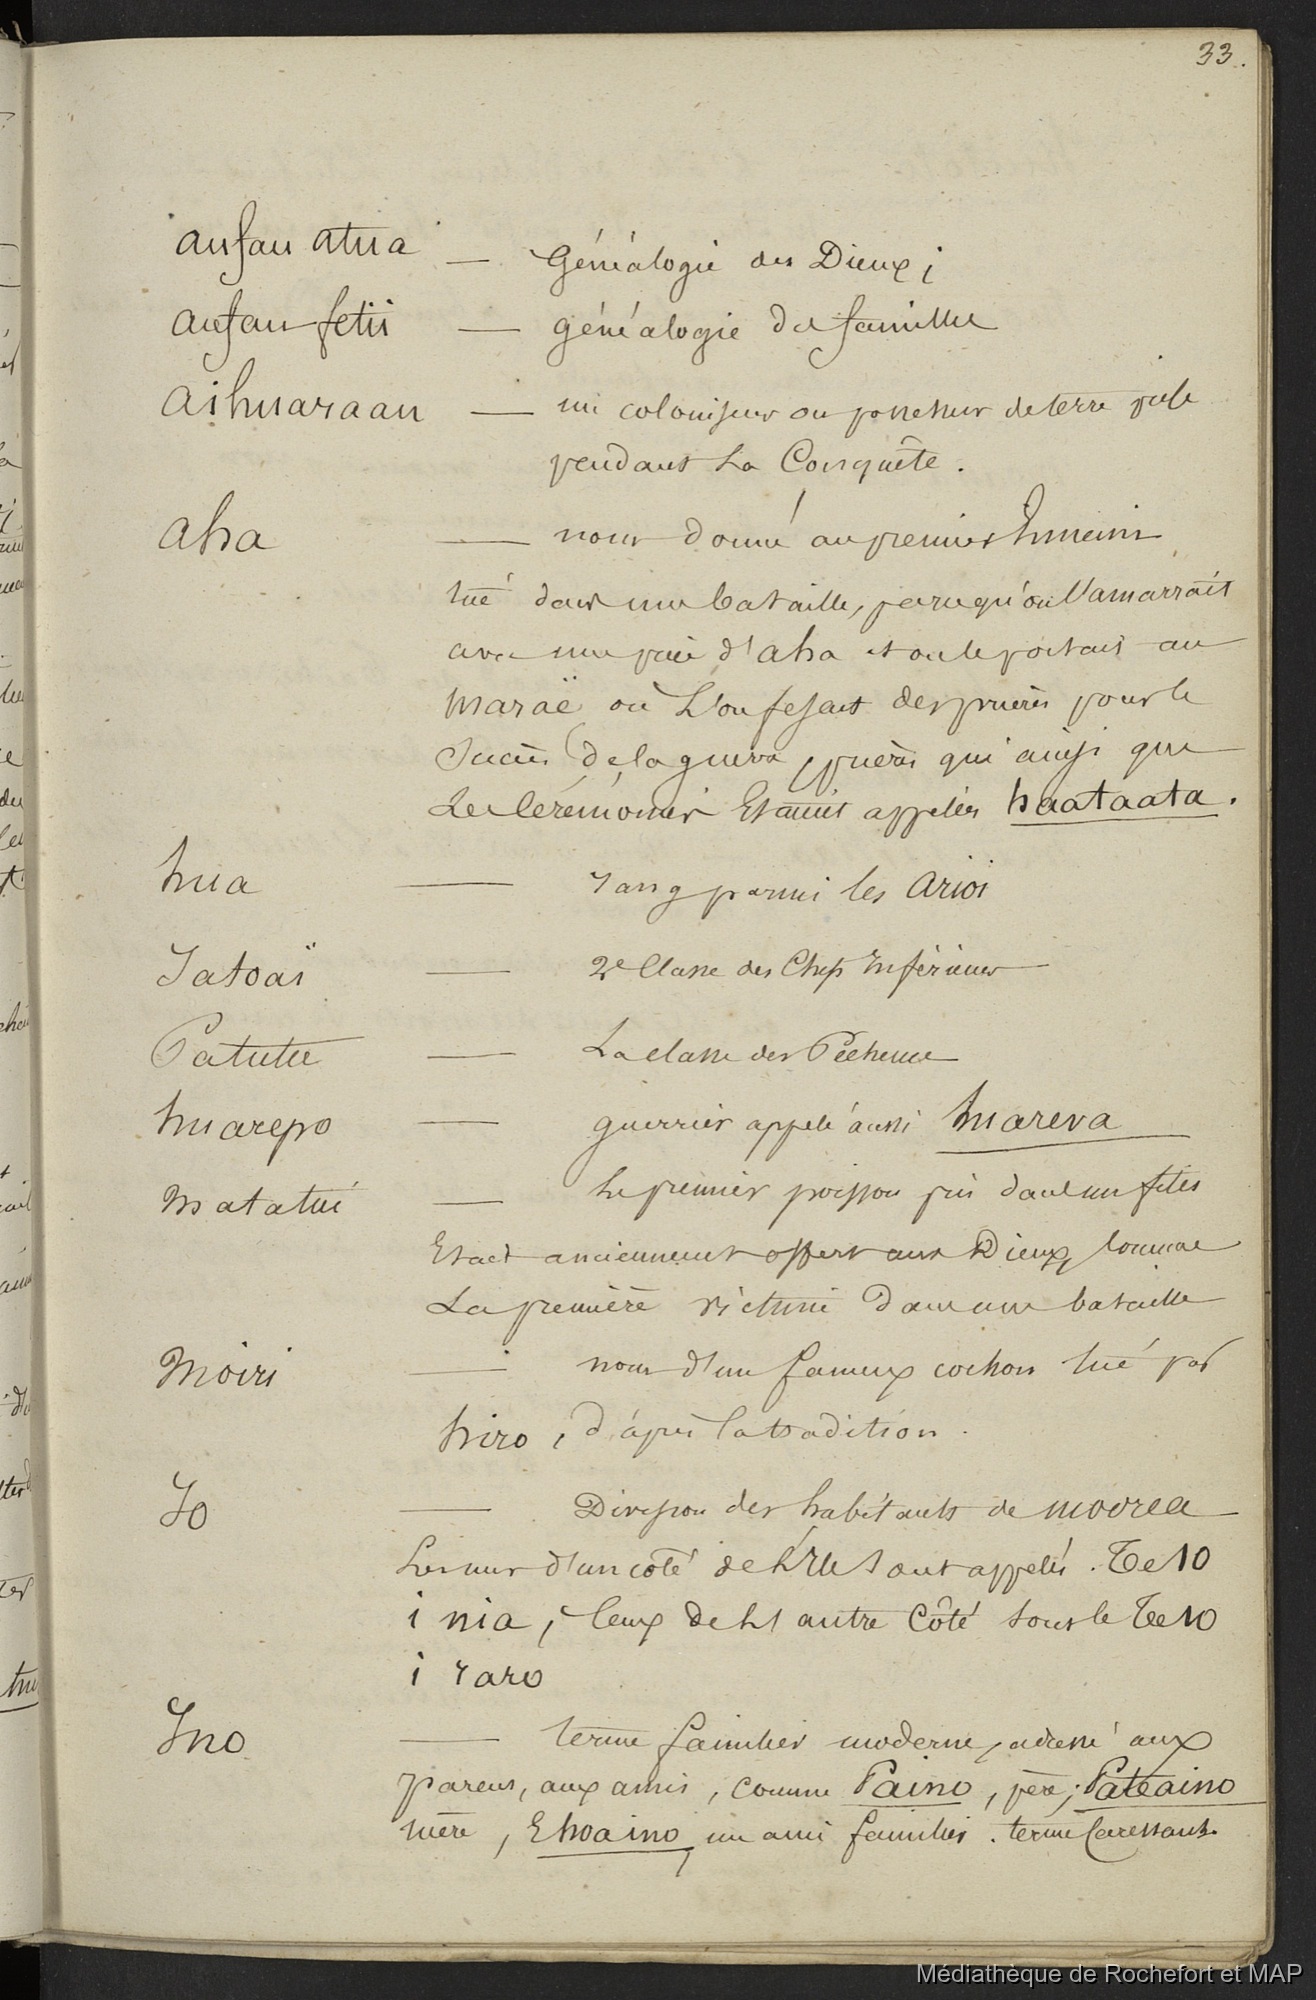 33.
aufau atua — Généalogie des Dieux;
aufau fetii — généalogie de famille
aihuaraau — un coloniseur ou possesseur de terre prise
pendant la Conquête.
aha — nom donné au premier humain
tué dans une bataille, parcequ'on l'amarrait
avec une paire d'aha et on le portait au
maraë où l'on fesait des prières pour le
succès de la guerre, prières qui ainsi que
les Cérémonies Etaient appelées haataata.
hua — rang parmi les arioi
Iatoaï — 2e Classe des Chefs Inférieurs
Patutu — La classe des Pêcheurs
huarepo — guerrier appelé aussi huareva
matatui — Le premier poisson pris dans un filet
Etait anciennement offert aux Dieux, Comme
La première victime dans une bataille
Moiri — nom d'un fameux cochon tué par
hiro, d'après la tradition.
Io — Division des habitants de moorea
Les uns d'un côté de l'Ile sont appelés. Te Io
i nia, Ceux de l'autre Côté sont le Te Io
i raro
Ino — terme familier moderne, adressé aux
parens, aux amis, comme Paino, père; Pateaino
mère, Ehoaino, un ami familier. terme Caressant.
Médiathèque de Rochefort et MAP